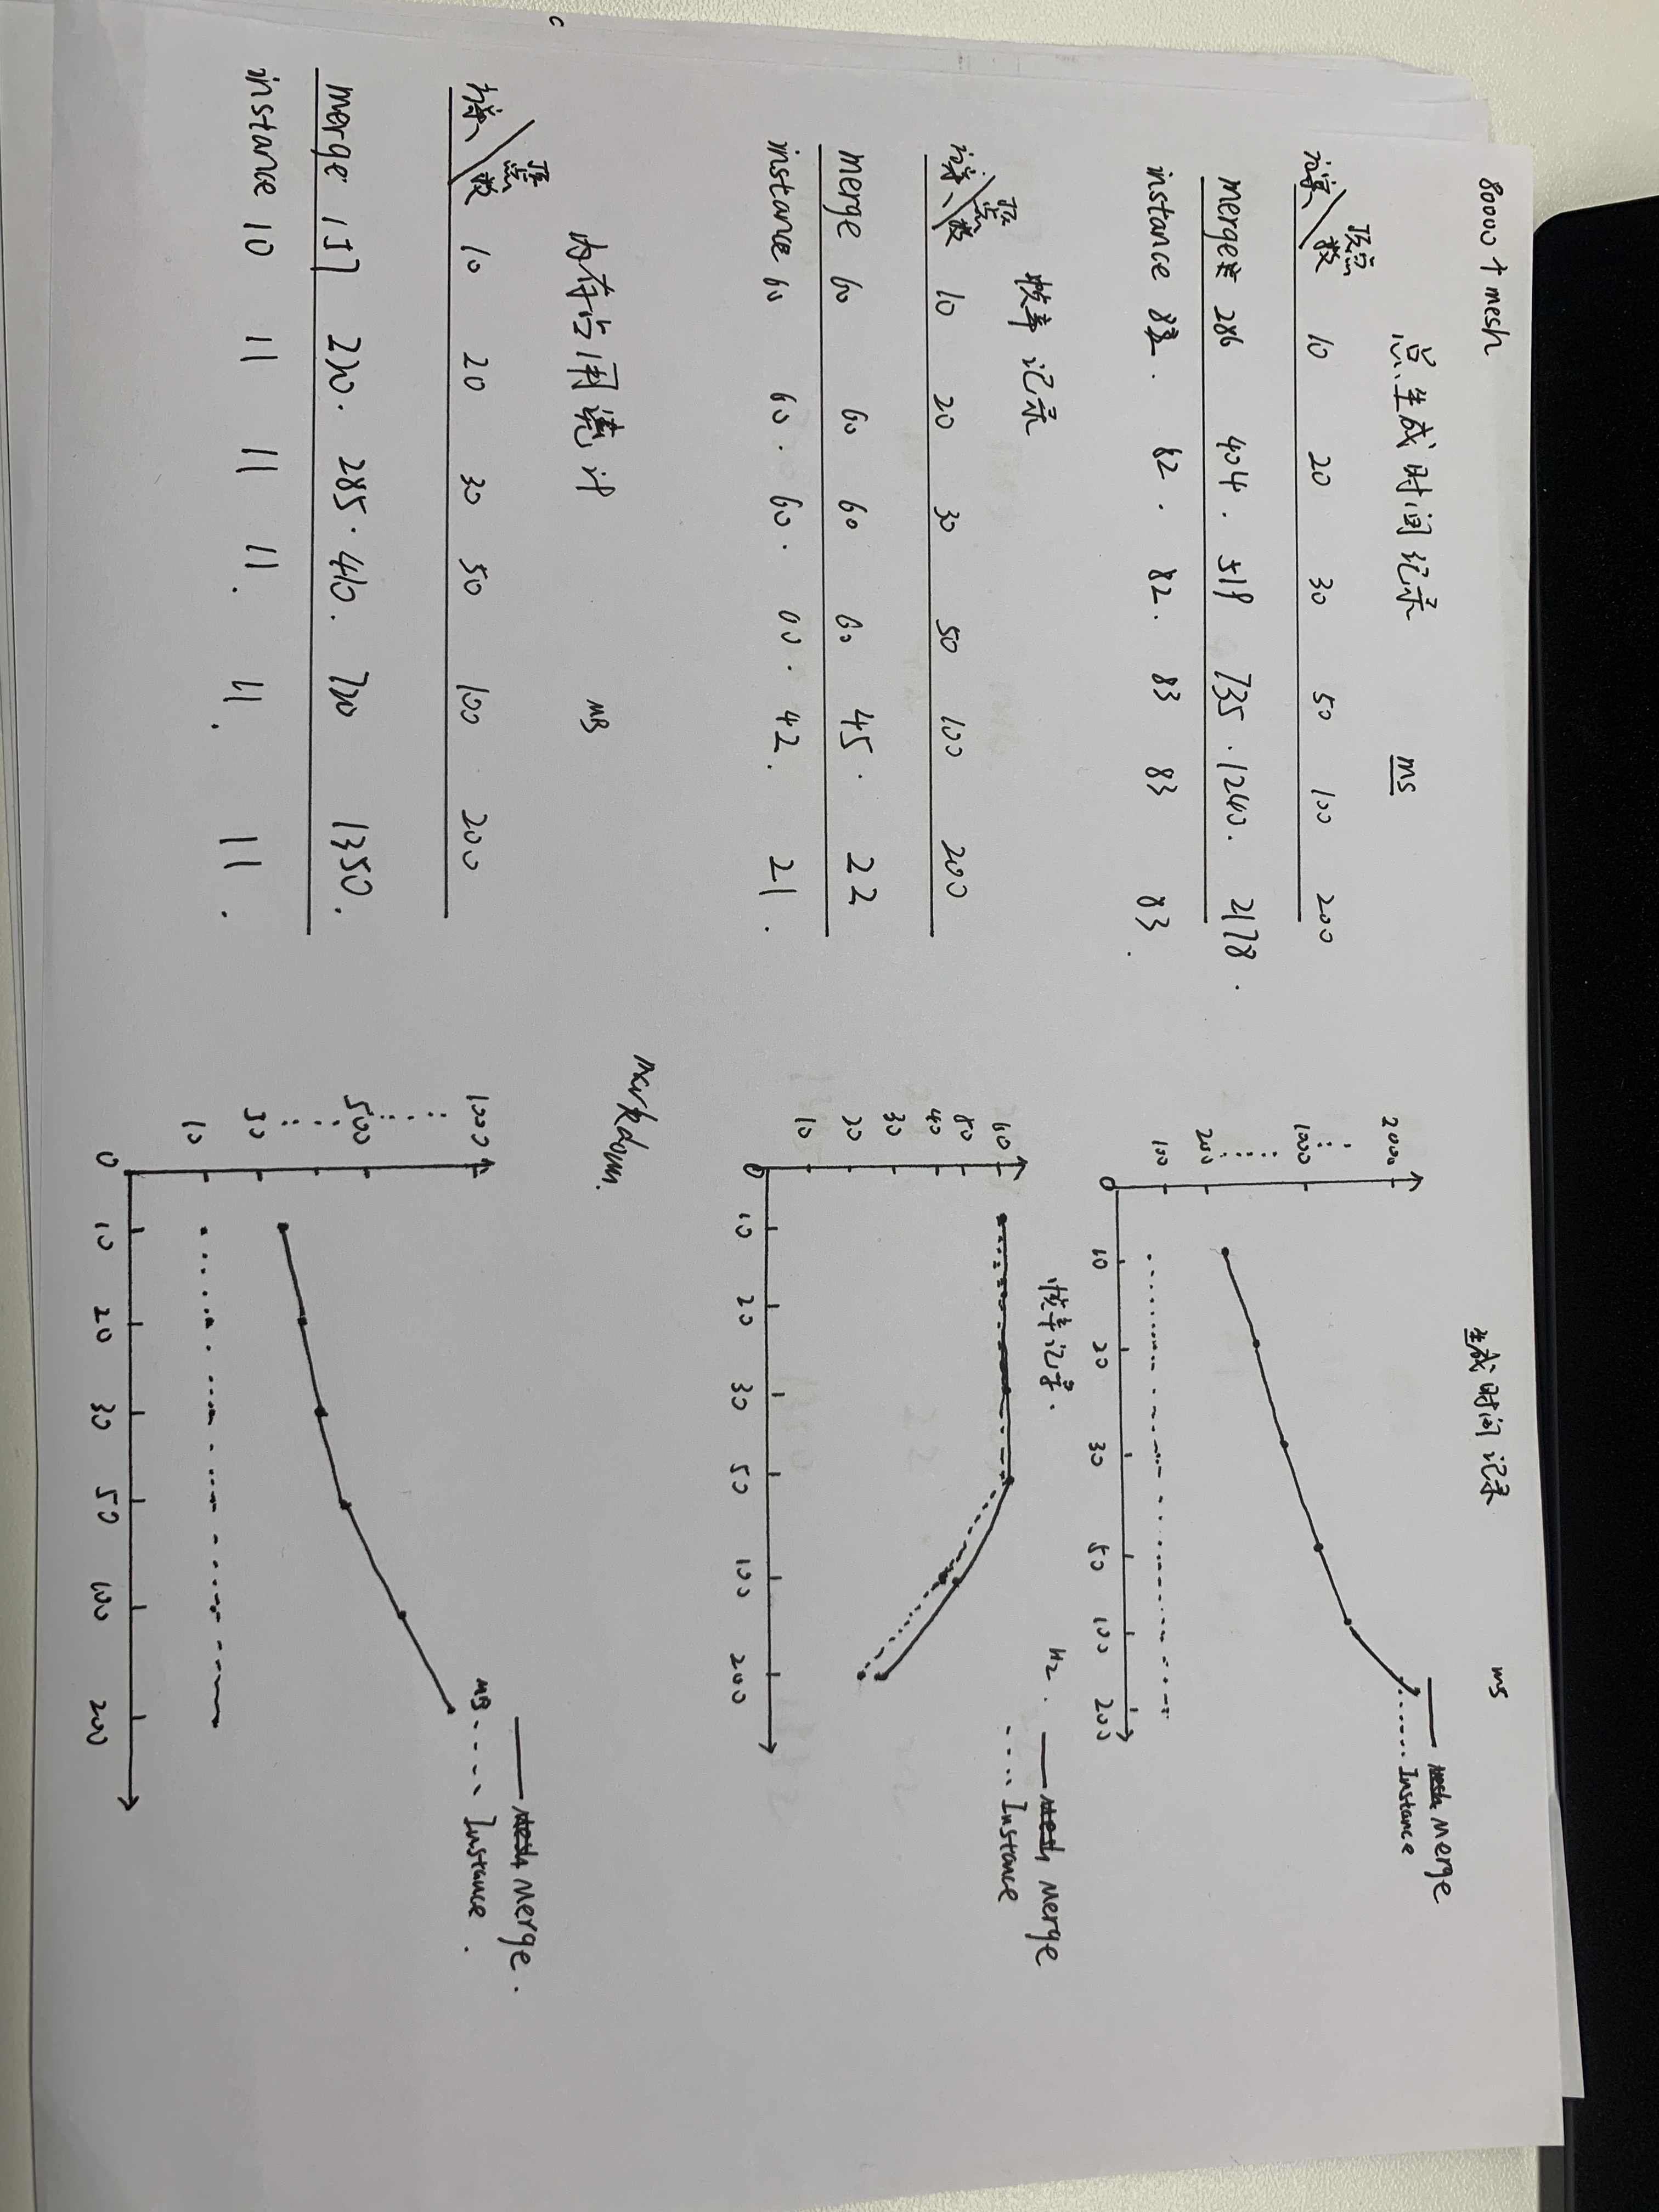 80000个mesh
总生成时间记录 ms
方案 顶点数 10 20 30 50 100 200
merge 286 404. 519 735. 1240. 2178.
instance 82. 82. 82. 83 83 83.
帧率记录
方案 顶点数 10 20 30 50 100 200
merge 60 60 60 60 45. 22
instance 60 60. 60. 60. 42. 21.
内存占用统计 MB
方案 顶点数 10 20 30 50 100 200
merge 157 220. 285. 410. 720 1350.
instance 10 11 11 11. 11. 11.
c
生成时间记录 ms
Merge
Instance
2000
1000
200
100
0 10 20 30 50 100 200
帧率记录. Hz.
Merge
Instance
60
50
40
30
20
10
0 10 20 30 50 100 200
markdown.
Merge.
MB Instance.
1000
500
30
10
0 10 20 30 50 100 200